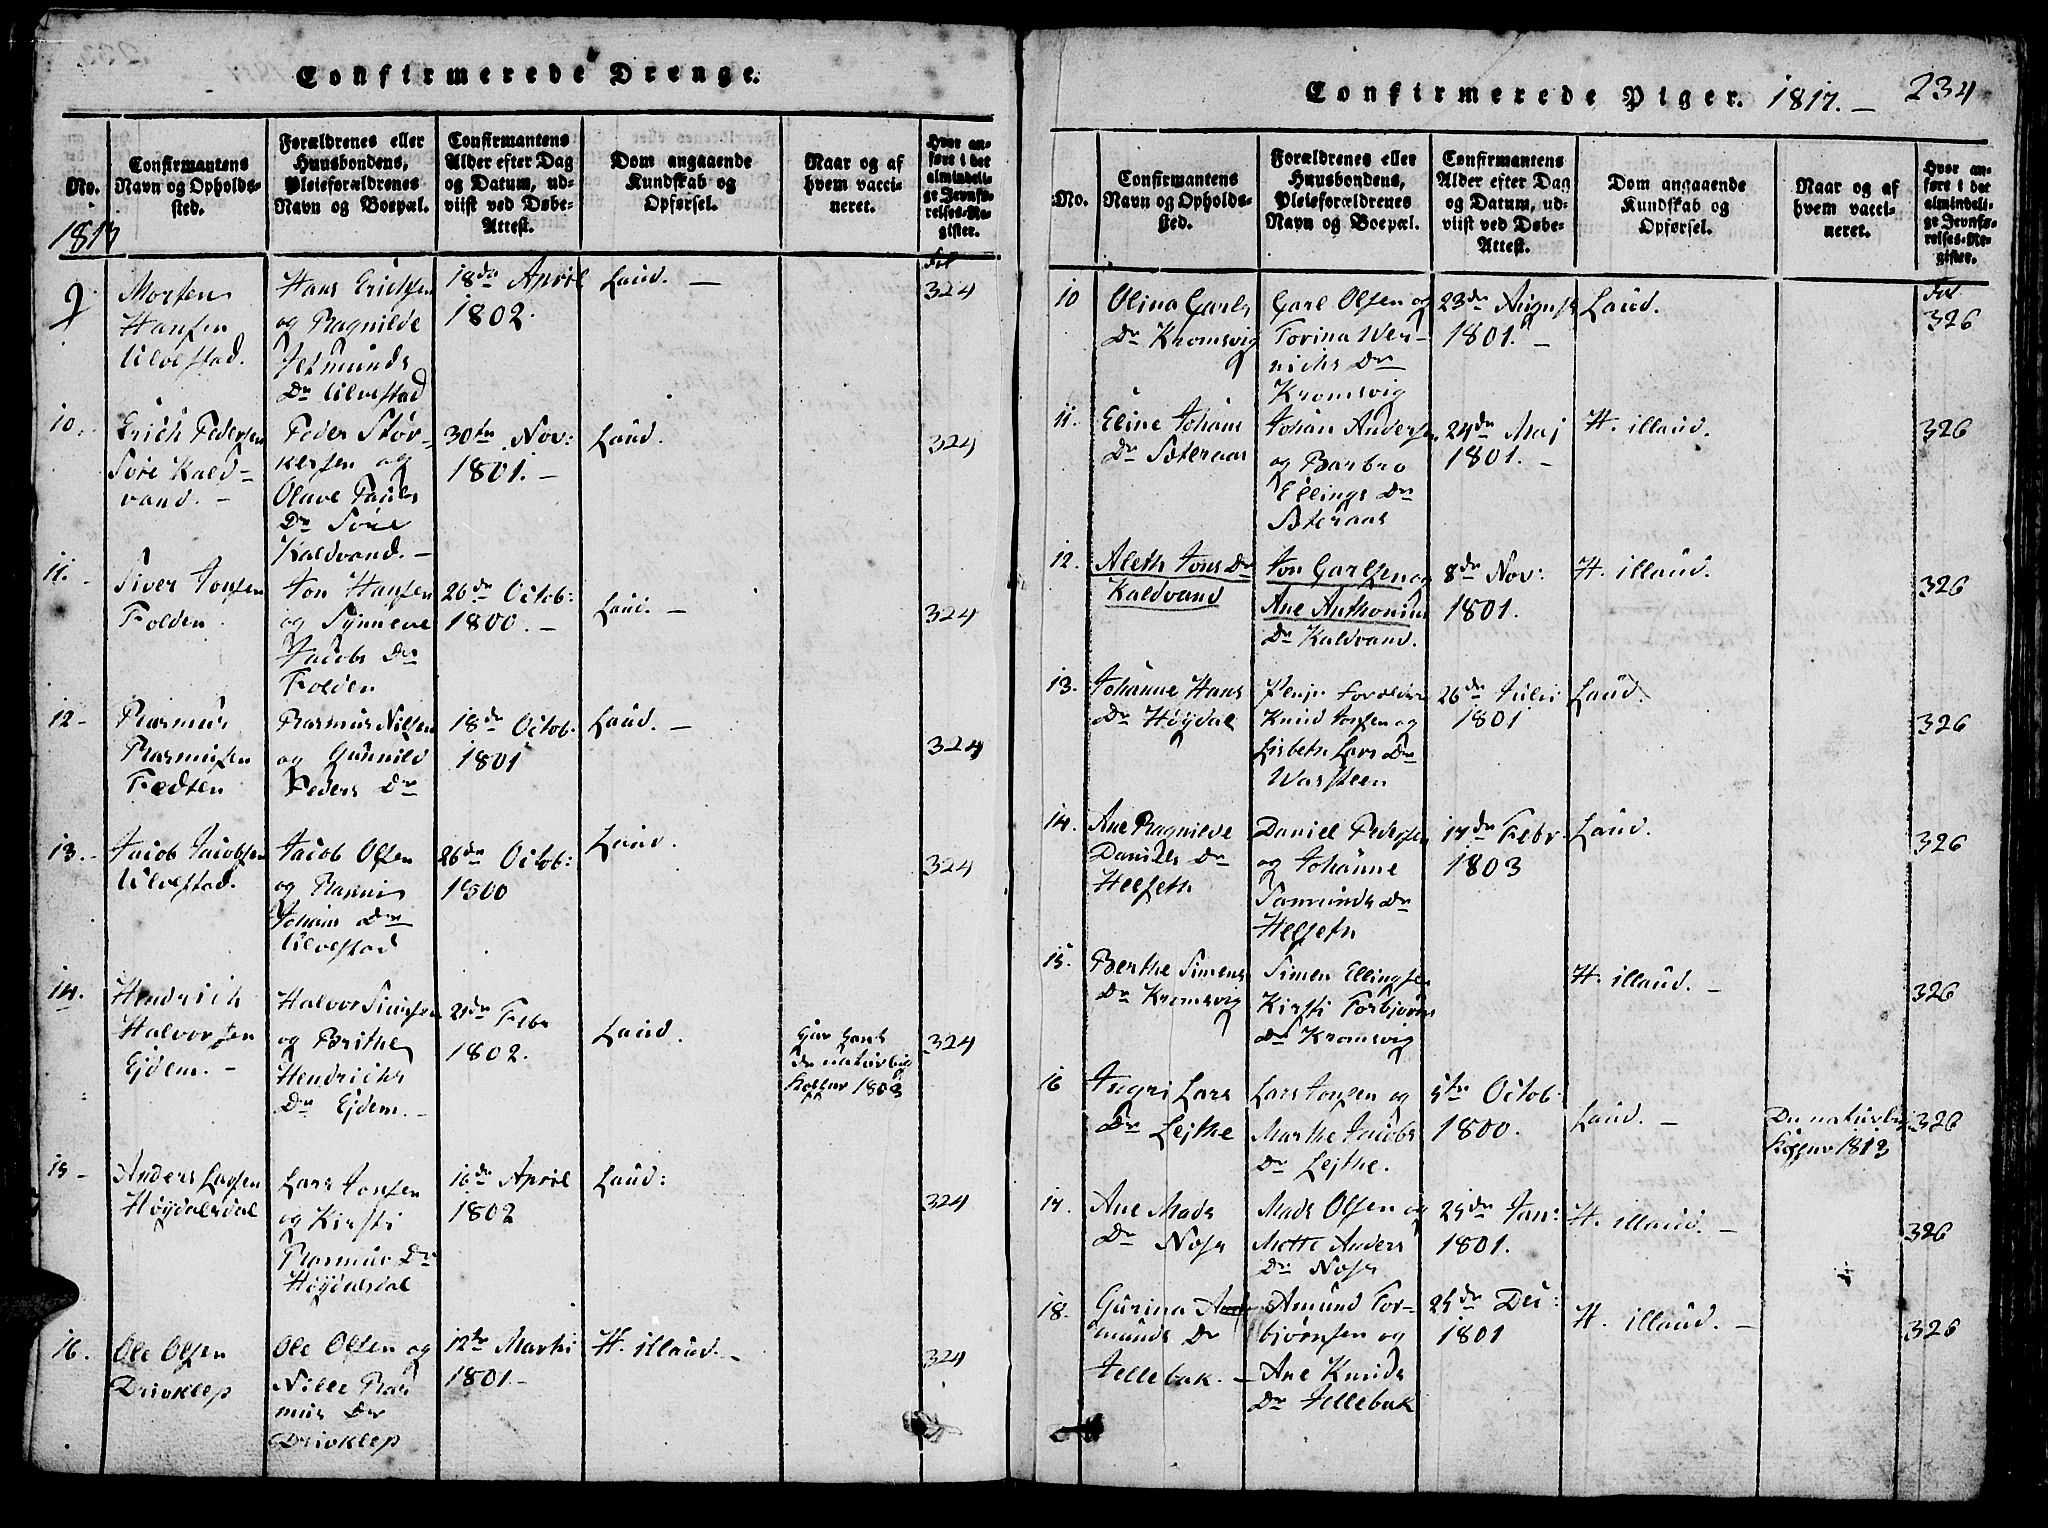 Confirmerede Drenge.
No.
Confirmantens
Navn og Opholds-
sted.
Forældrenes eller
Huusbondens,
Pleieforældrenes
Navn og Boepæl.
Confirmantens
Alder efter Dag
og Datum, ud-
viist ved Døbe-
Attest.
Dom angaaende
Kundskab og
Opførsel.
Naar og af
hvem vacci-
neret.
Hvor an-
ført i det
almindeli-
ge Jevnfø-
relses-Re-
gister.
1817
9.
Morten
Hansen
Ulvestad.
Hans Erichsen
og Ragnilde
Jetmunds
Dr Ulvestad
18de April
1802.
Laud. —
Fol
324
10.
Erich Pedersen
Søre Kald-
vand. —
Peder Stør-
kersen og
Olave Pauls
Dr Søre
Kaldvand. —
30te Nov:
1801. —
Laud.
324
11. -
Siver Jonsen
Folden
Jon Hansen
og Synneve
Jacobs Dr
Folden
26de Octob:
1800. —
Laud. —
324
12 -
Rasmus
Rasmusen
Rasmus Nilsen
og Gunnild
Peders Dr
18de Octob.
1801
Laud. —
324
13. -
Jacob Jacobsen
Ulvestad.
Jacob Olsen
og
Johans Dr
Ulvestad
26de Octob:
1800
Laud.
324
14.
Hendrich
Halvorsen
Ejdem. —
Halvor Simsen
og Brithe
Hendrichs
Dr Ejdem. —
21de Febr
1802.
Laud.
de naturlig
Kopper 1803
324
15 -
Anders Larsen
Høydalsdal
Lars Jonsen
og Kirsti
Rasmus Dr
Høydalsdal
16de April
1802
Laud:
324
16.
Ole Olsen
Drivklep
Ole Olsen og
Nille Ras
mus Dr
Drivklep
12te Marti
1801. -
H. illaud. —
324
Confirmerede Piger. 1817. — 234
No.
Confirmantens
Navn og Opholds-
sted.
Forældrenes eller
Huusbondens,
Pleieforældrenes
Navn og Boepæl.
Confirmantens
Alder efter Dag
og Datum, ud-
viist ved Døbe-
Attest.
Dom angaaende
Kundskab og
Opførsel.
Naar og af
hvem vacci-
neret.
Hvor an-
ført i det
almindeli-
ge Jevnfø-
relses-Re-
gister.
10
Olina Carls
Dr Kromsvig
Carl Olsen og
Torina Wer-
nichs Dr
Kromsvig
23de August
1801. —
Laud.
Fol
326
11.
Eline Johans
Dr Sæteraas
Johan Andersen
og Barbro
Ellings Dr
Sæteraas
24de Maj
1801. —
H. illaud.
326
12.
Aleth Jons Dr
Kaldvand
Jon Carlsen og
Ane Anthonius
Dr Kaldvand.
8de Nov:
1801.
H. illaud.
326
13.
Johanne Hans
Dr Høydal
Knud Jonsen og
Lisbeth Lars Dr
Warsteen
26de Julii
1801
Laud.
326
14.
Ane Ragnilde
Daniels Dr
Helseth
Daniel Pedersen
og Johanne
Samunds Dr
Helseth
17de Febr
1803
Laud.
326
15.
Berthe Simens
Dr Kromsvig
Simen Ellingsen
Kirsti Torbjørns
Dr Kromsvig
H. illaud. —
326
16
Ingri Lars
Dr Lejthe
Lars Jonsen og
Marthe Jacobs
Dr Lejthe.
5te Octob.
1800.
Laud. —
De naturlig
Kopper 1813
326
17.
Ane Mads
Dr Nose
Mads Olsen og
Mette Anders
Dr Nose
25de Jan:
1801.
H. illaud. —
326
18.
Gurina
munds Dr
Jellebak. —
Amund Tor-
bjørnsen og
Ane Knuds
Dr Jellebak
25de Dec:
1801
H. illaud. —
326